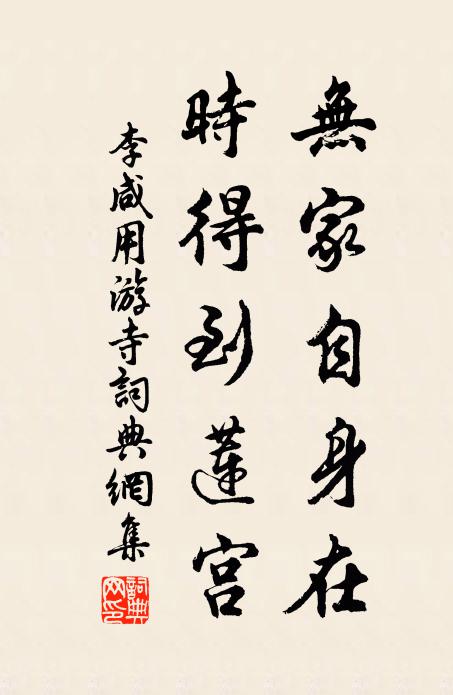 無家自身在
時得到蓮宮
李咸用游寺詞典網集
詞典網印